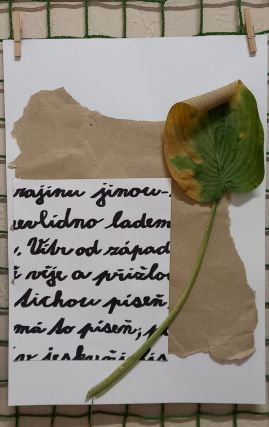 rajinu jinou-
evlídno ladem
. Vítr od západ
víje a přižlo
tichou píseň
má to píseň, p